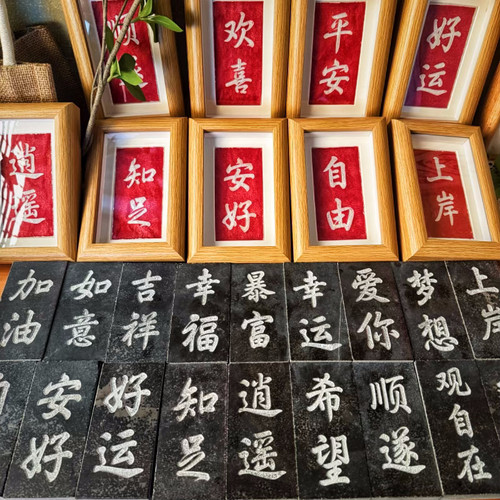 顺遂
欢喜
平安
好运
逍遥
知足
安好
自由
上岸
加油
如意
吉祥
幸福
暴富
幸运
爱你
梦想
上岸
安好
好运
知足
逍遥
希望
顺遂
观自在